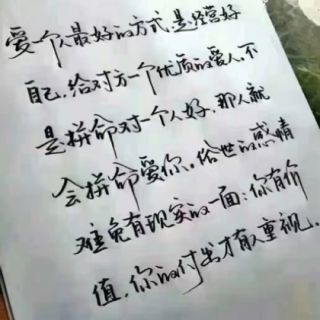 爱一个人最好的方式,是经营好
自己,给对方一个优质的爱人。不
是拼命对一个人好,那人就
会拼命爱你。俗世的感情
难免有现实的一面:你有价
值,你的付出才有人重视。